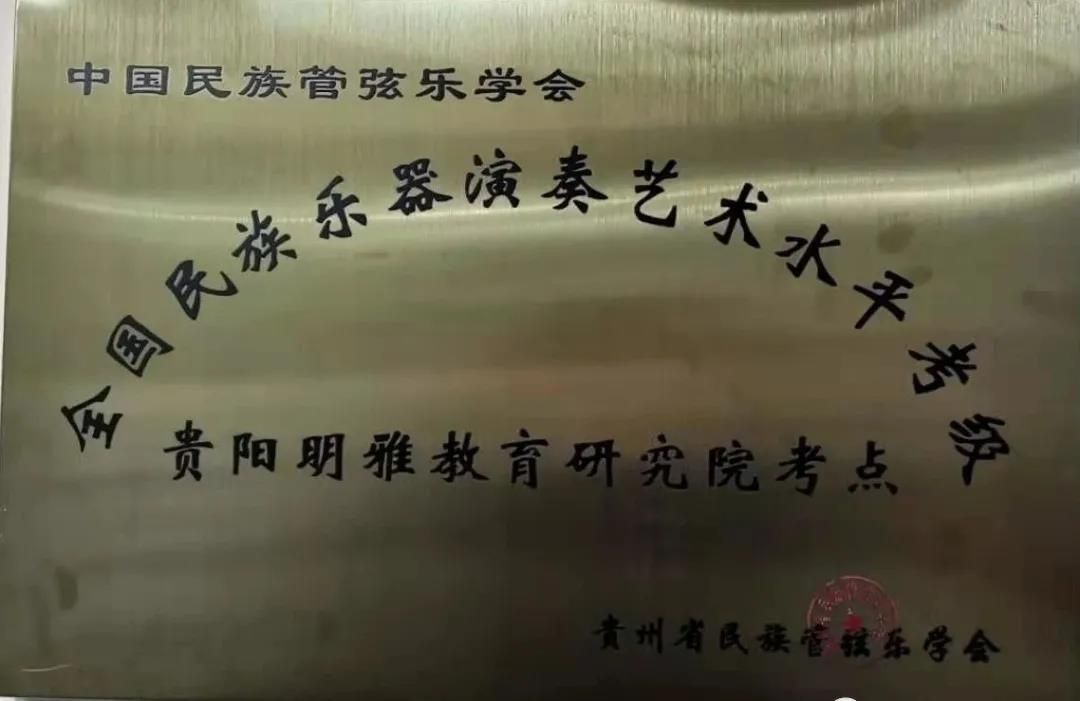 中国民族管弦乐学会
全国民族乐器演奏艺术水平考级
贵阳明雅教育研究院考点
贵州省民族管弦乐学会